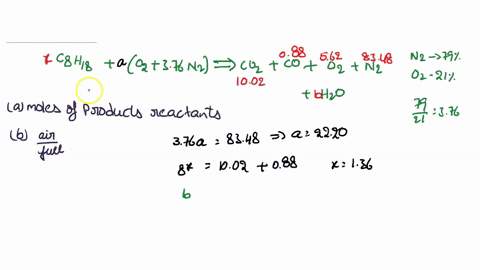 0.88 5.62 83.48
x C8H18 + a(O2 + 3.76 N2) ⇒ CO2 + CO + O2 + N2
10.02
+ bH2O
N2 → 79%
O2 - 21%
79/21 = 3.76
(a) moles of Products reactants
(b) air/full
3.76a = 83.48 ⇒ a = 22.20
8x = 10.02 + 0.88 x = 1.36
b